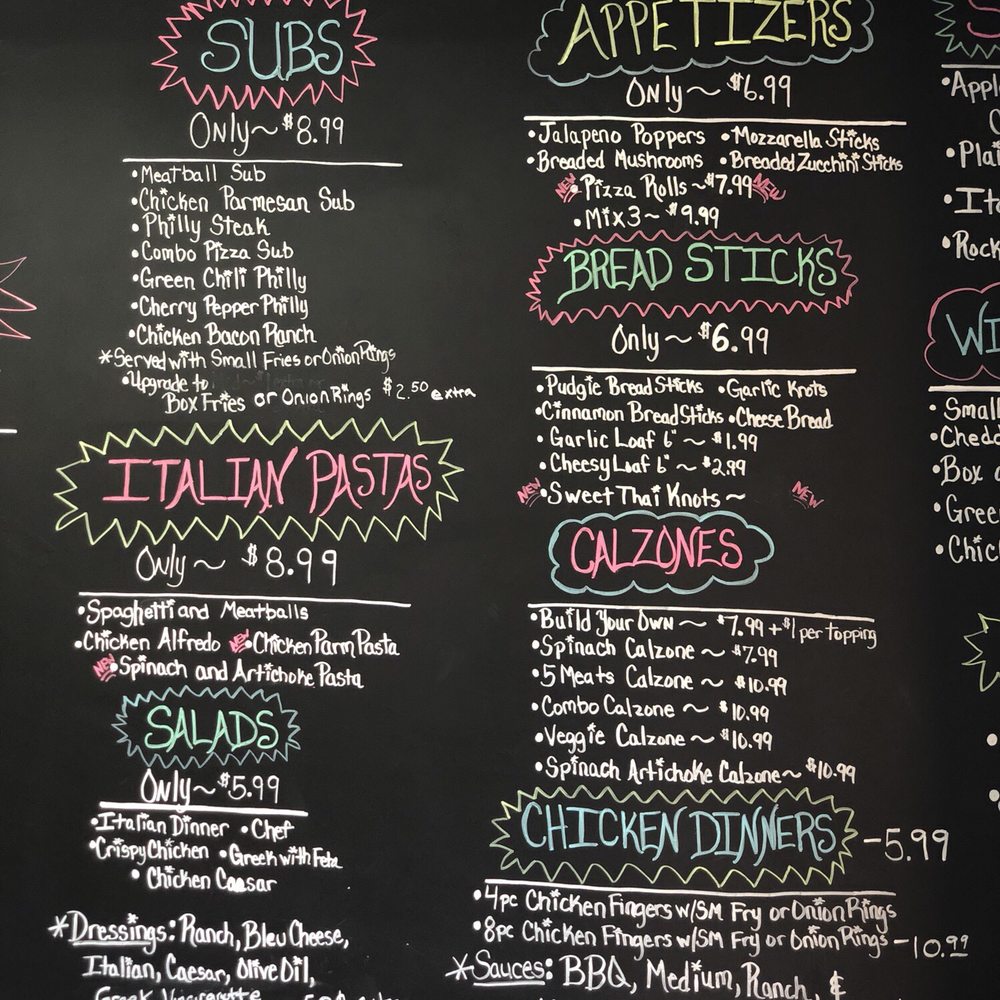 SUBS
Only~ $8.99
•Meatball Sub
•Chicken Parmesan Sub
•Philly Steak
•Combo Pizza Sub
•Green Chili Philly
•Cherry Pepper Philly
•Chicken Bacon Ranch
*Served with Small Fries or Onion Rings
•Upgrade to
Box Fries or Onion Rings $2.50 extra
ITALIAN PASTAS
Only~ $8.99
•Spaghetti and Meatballs
•Chicken Alfredo NEW •Chicken Parm Pasta
NEW •Spinach and Artichoke Pasta
SALADS
Only~ $5.99
•Italian Dinner •Chef
•Crispy Chicken •Greek with Feta
•Chicken Caesar
*Dressings: Ranch, Bleu Cheese,
Italian, Caesar, Olive Oil,
Greek Vinaigrette
APPETIZERS
Only~ $6.99
•Jalapeno Poppers •Mozzarella Sticks
•Breaded Mushrooms •Breaded Zucchini Sticks
NEW •Pizza Rolls ~ $7.99 NEW
•Mix 3 ~ $9.99
BREAD STICKS
Only~ $6.99
•Pudgie Bread Sticks •Garlic Knots
•Cinnamon Bread Sticks •Cheese Bread
•Garlic Loaf 6" ~ $1.99
•Cheesy Loaf 6" ~ $2.99
NEW •Sweet Thai Knots ~ NEW
CALZONES
•Build Your Own ~ $7.99 + $1 per topping
•Spinach Calzone ~ $7.99
•5 Meats Calzone ~ $10.99
•Combo Calzone ~ $10.99
•Veggie Calzone ~ $10.99
•Spinach Artichoke Calzone ~ $10.99
CHICKEN DINNERS -5.99
•4pc Chicken Fingers w/SM Fry or Onion Rings
•8pc Chicken Fingers w/SM Fry or Onion Rings -10.99
*Sauces: BBQ, Medium, Ranch, &
•Appl
•Plai
•Ita
•Rock
WI
•Small
•Chedd
•Box
•Gree
•Chic